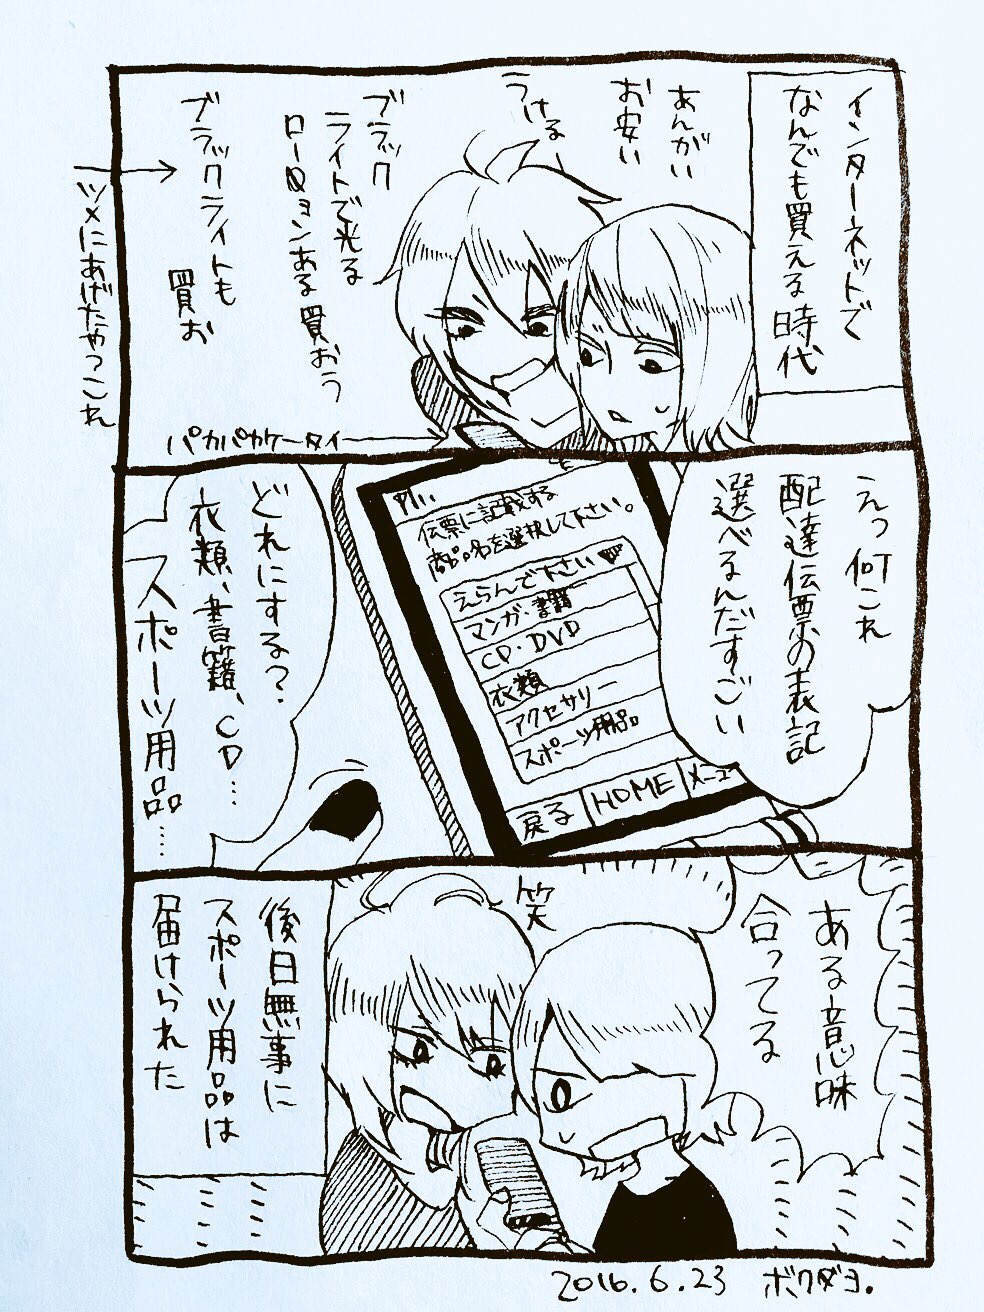 インターネットで
なんでも買える時代
あんがい
お安い
うける
ブラック
ライトで光る
ローションある買おう
ブラックライトも
買お
ツメにあげたやつこれ
パカパカケータイ
えっ何これ
配達伝票の表記
選べるんだすごい
伝票に記載する
商品名を選択して下さい。
えらんで下さい♥
マンガ・書籍
CD・DVD
衣類
アクセサリー
スポーツ用品
戻る
HOME
メニュ
どれにする?
衣類、書籍、CD…
スポーツ用品……
ある意味
合ってる
笑
後日無事に
スポーツ用品は
届けられた
2016.6.23 ボクダヨ.